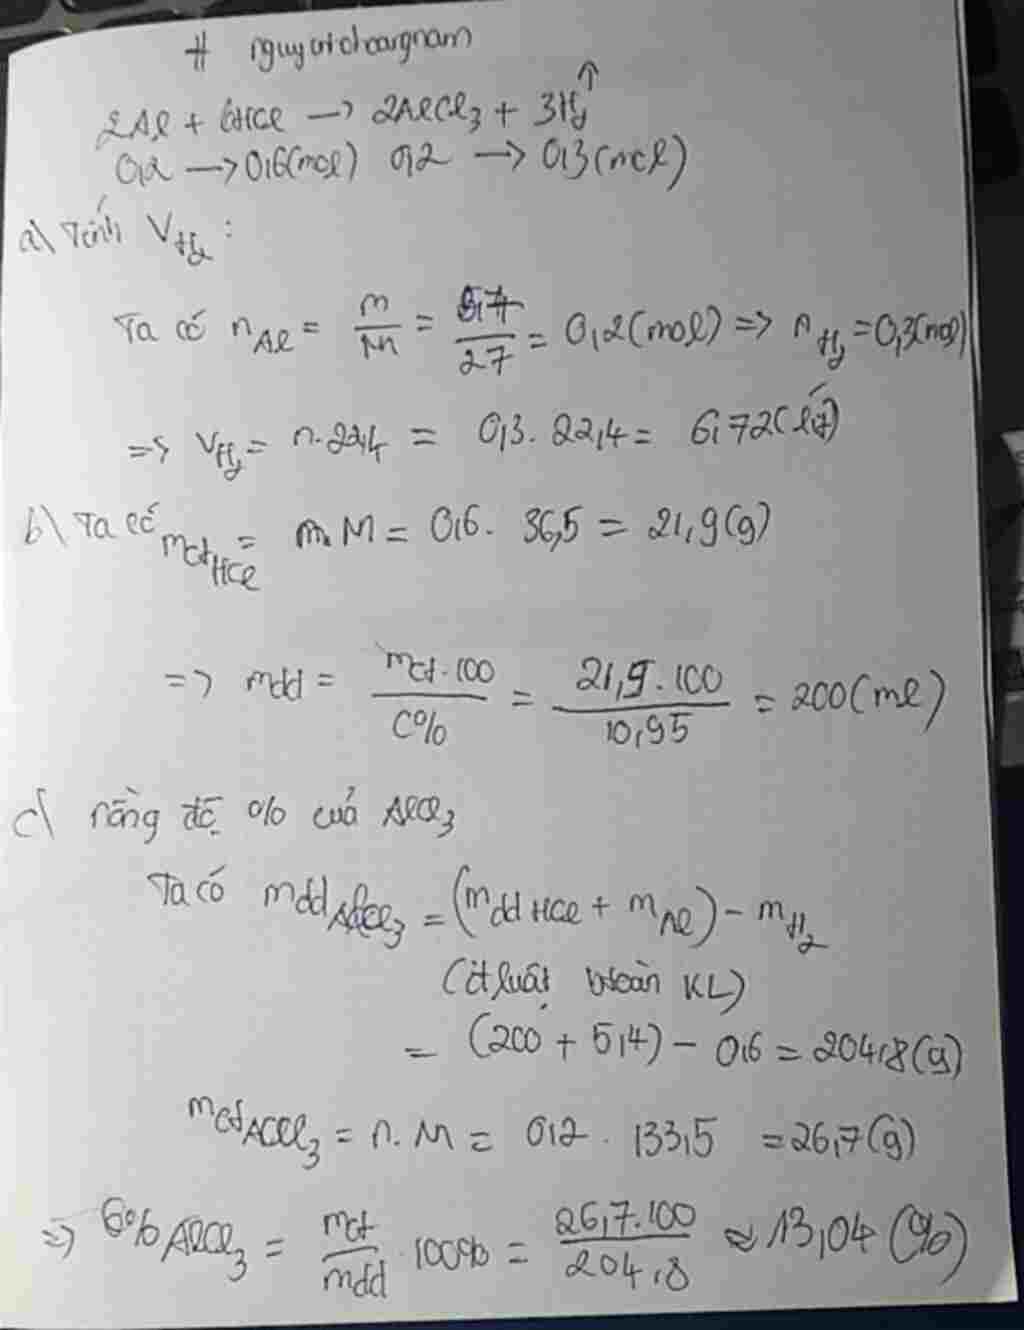 # nguyotchoargnam
2Al + 6HCl → 2AlCl3 + 3H2↑
0,2 → 0,6(mol) 0,2 → 0,3(mol)
a) Tính VH2 :
Ta có nAl = m/M = 5,4/27 = 0,2(mol) => nH2 = 0,3(mol)
=> VH2 = n.22,4 = 0,3. 22,4 = 6,72(lít)
b) Ta có mctHCl = n.M = 0,6. 36,5 = 21,9(g)
=> mdd = mct.100/C% = 21,9.100/10,95 = 200(ml)
c) nồng độ % của AlCl3
Ta có mddAlCl3 = (mddHCl + mAl) - mH2
(đluật btoàn KL)
= (200 + 5,4) - 0,6 = 204,8(g)
mctAlCl3 = n.M = 0,2 . 133,5 = 26,7(g)
=> C%AlCl3 = mct/mdd . 100% = 26,7.100/204,8 ≈ 13,04(%)